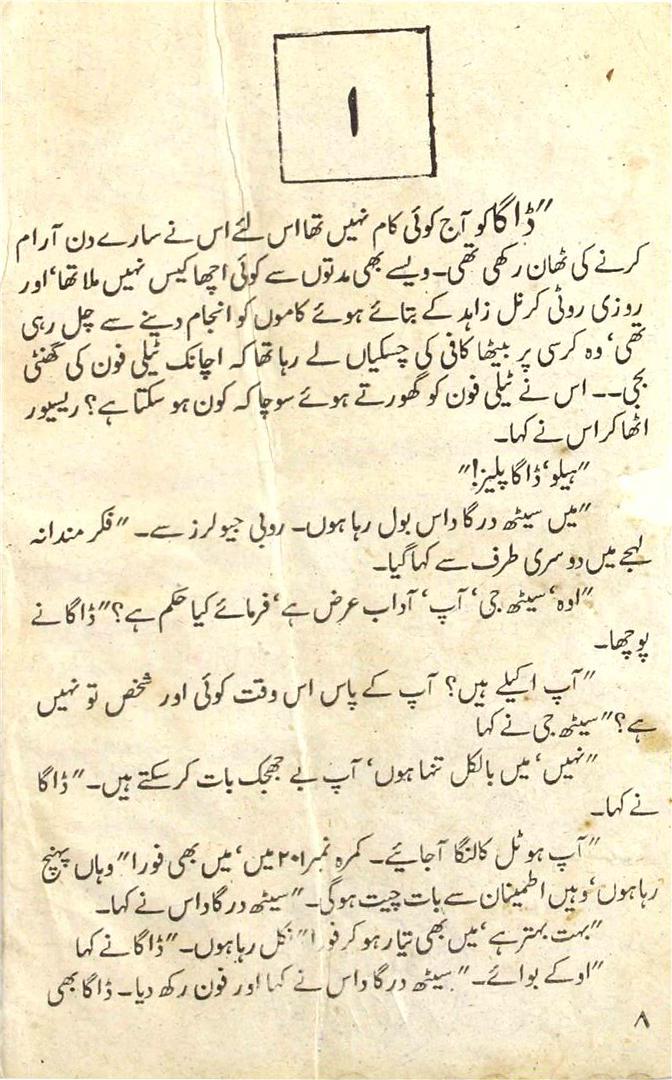 ۱
"ڈاگا کو آج کوئی کام نہیں تھا اس لئے اس نے سارے دن آرام
کرنے کی ٹھان رکھی تھی۔ ویسے بھی مدتوں سے کوئی اچھا کیس نہیں ملا تھا، اور
روزی روٹی کرنل زاہد کے بتائے ہوئے کاموں کو انجام دینے سے چل رہی
تھی، وہ کرسی پر بیٹھا کافی کی چسکیاں لے رہا تھا کہ اچانک ٹیلی فون کی گھنٹی
بجی۔۔ اس نے ٹیلی فون کو گھورتے ہوئے سوچا کہ کون ہو سکتا ہے؟ ریسیور
اٹھا کر اس نے کہا۔
"ہیلو، ڈاگا پلیز!"
"میں سیٹھ درگا داس بول رہا ہوں۔ روبی جیولرز سے۔ "فکر مندانہ
لہجے میں دوسری طرف سے کہا گیا۔
"اوہ، سیٹھ جی، آپ، آداب عرض ہے، فرمائے کیا حکم ہے؟" ڈاگا نے
پوچھا۔
"آپ اکیلے ہیں؟ آپ کے پاس اس وقت کوئی اور شخص تو نہیں
ہے؟" سیٹھ جی نے کہا
"نہیں، میں بالکل تنہا ہوں، آپ بے جھجک بات کر سکتے ہیں۔" ڈاگا
نے کہا۔
"آپ ہوٹل کالنگا آجائیے۔ کمرہ نمبر ۲۰۱ میں، میں بھی فورا" وہاں پہنچ
رہا ہوں، وہیں اطمینان سے بات چیت ہوگی۔" سیٹھ درگا داس نے کہا۔
"بہت بہتر ہے، میں بھی تیار ہو کر فورا" نکل رہا ہوں۔" ڈاگا نے کہا
"اوکے بوائے۔" سیٹھ درگا داس نے کہا اور فون رکھ دیا۔ ڈاگا بھی
۸